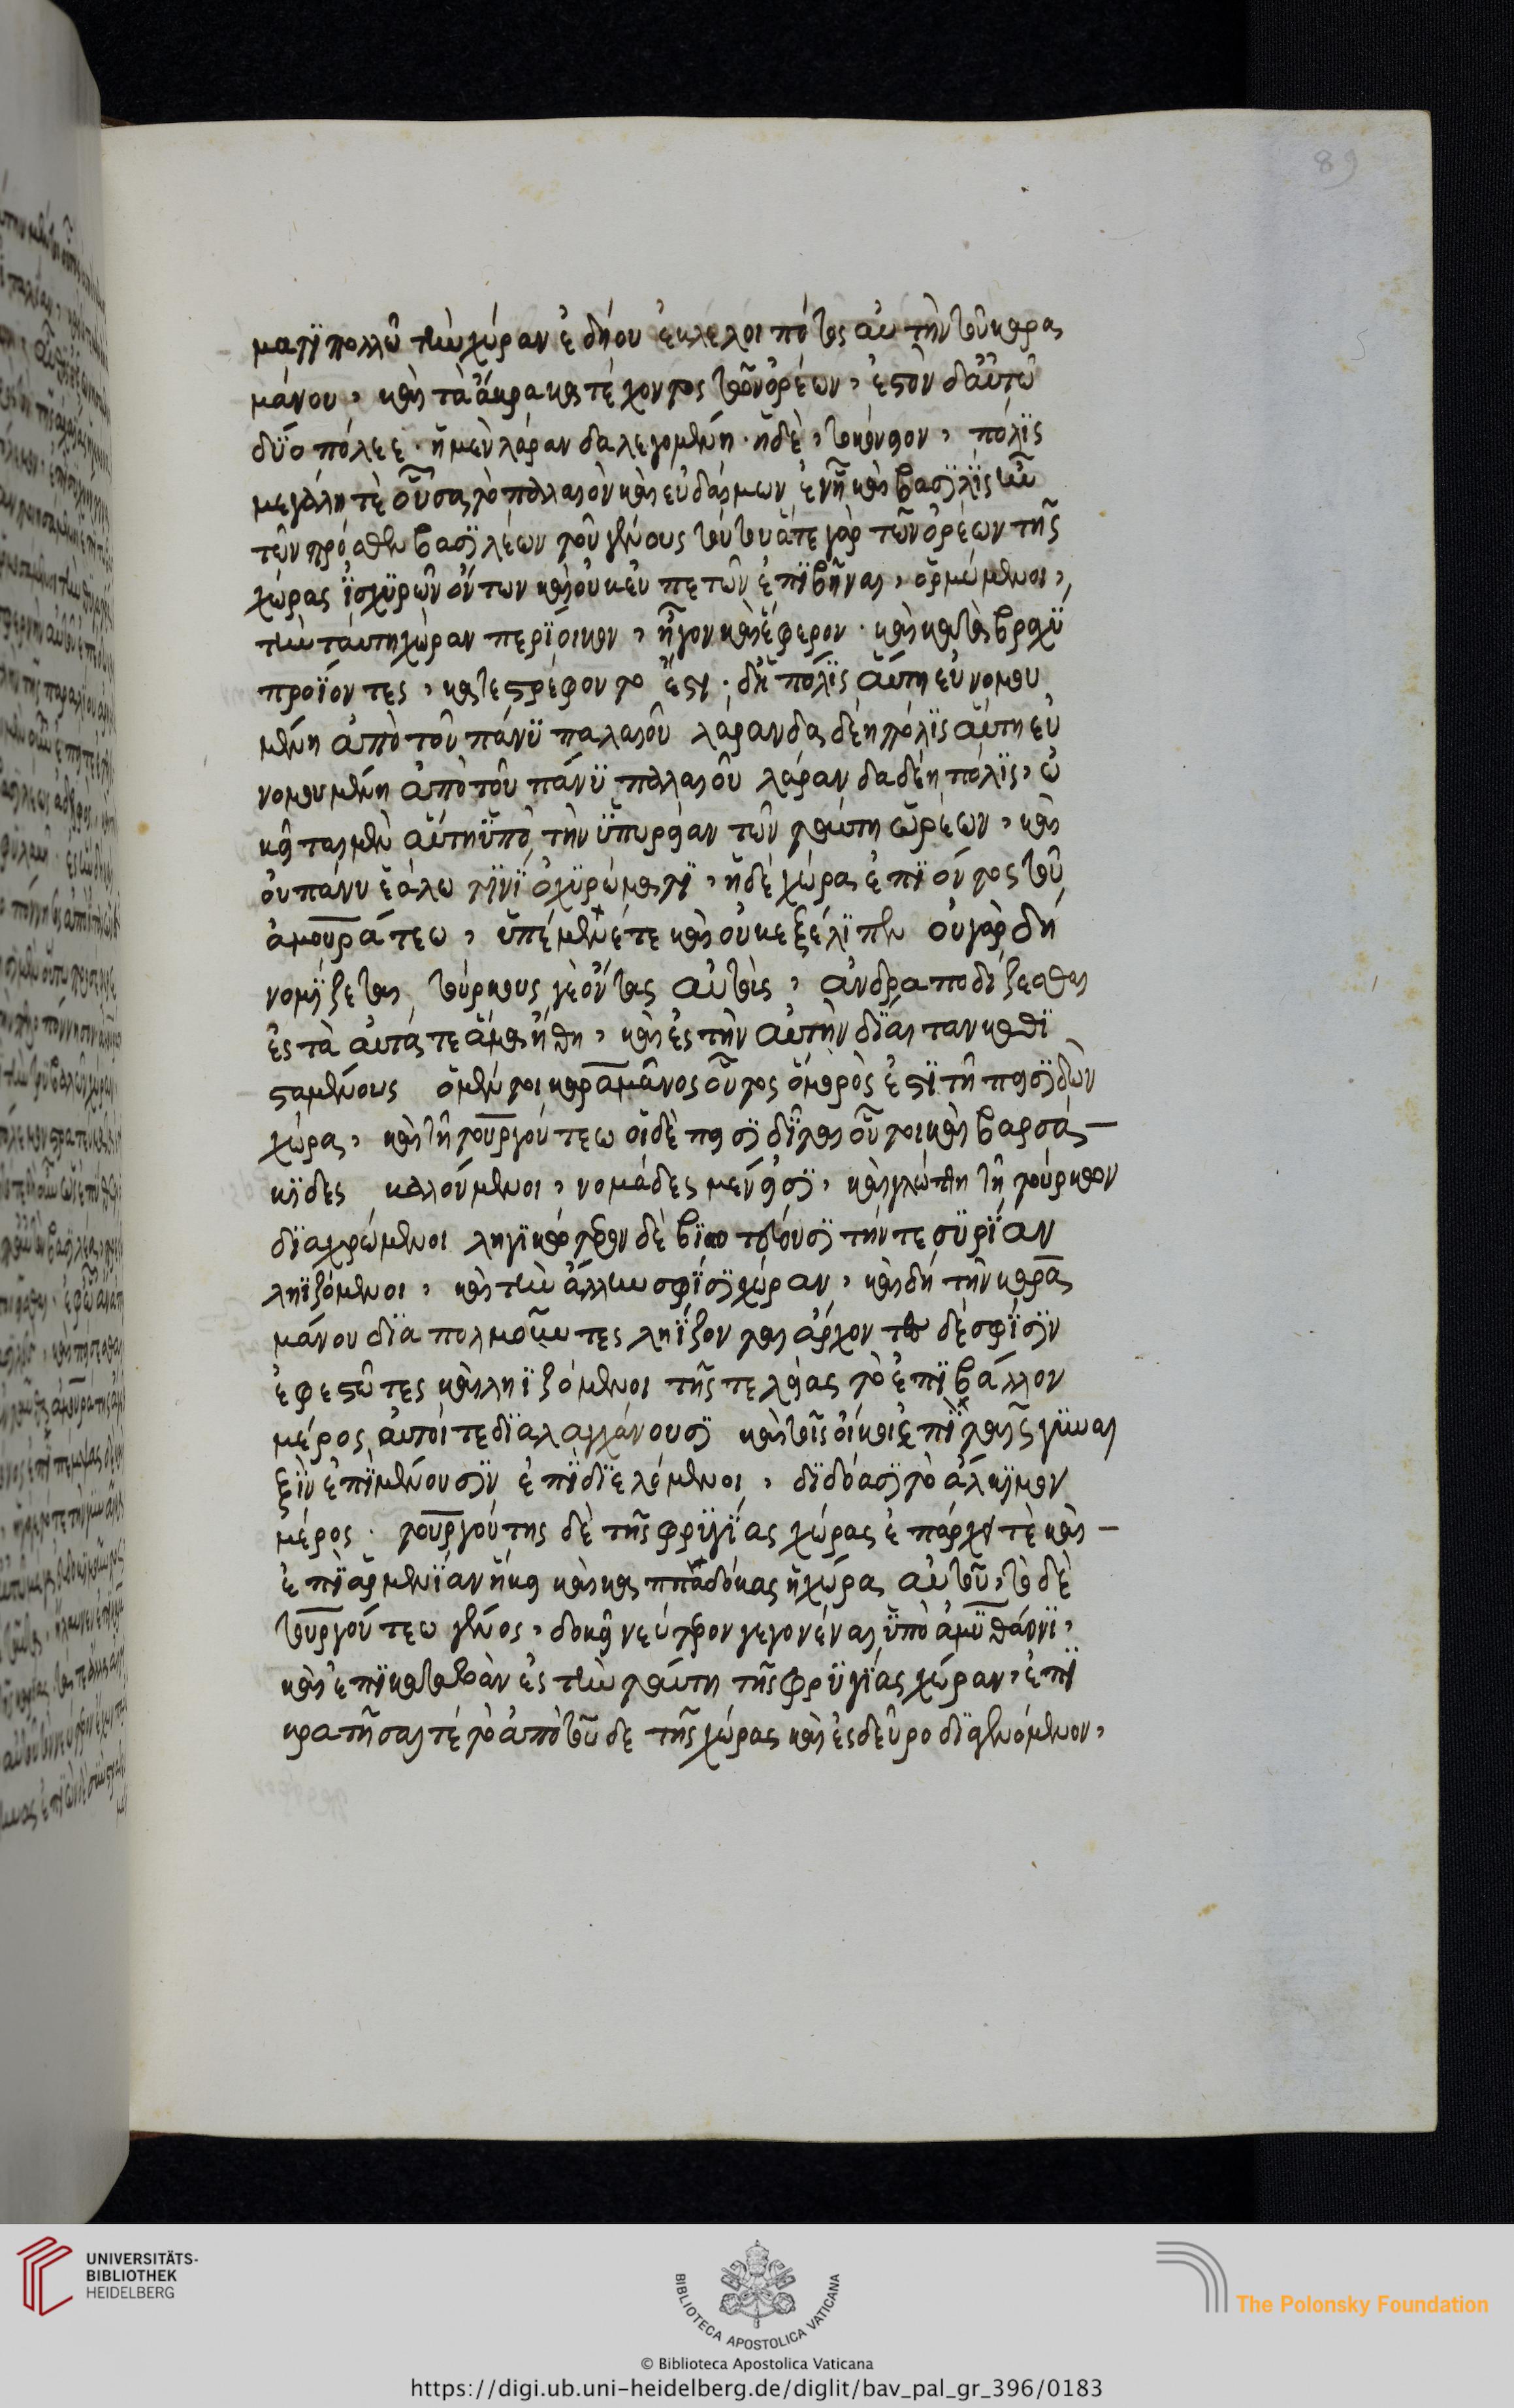 89
ματι πολλῶ τὴν χώραν ἐδήου ἐκλελοιπότος αὐτὴν τοῦ καρα
μάνου, καὶ τὰ ἄκρα κατέχοντος τῶν ὀρέων, ἐστὸν δ' αὐτῶ
δύο πόλεε· ἡ μὲν λάρανδα λεγομένη· ἡ δὲ, τὸ κόνιον, πόλις
μεγάλη τὲ οὖσα τὸ παλαιὸν καὶ εὐδαίμων ἐν ἧ καὶ βασιλὶς ἦν
τῶν πρόσθεν βασιλέων τοῦ γένους τούτου ἅτε γὰρ τῶν ὀρέων τῆς
χώρας ἰσχυρῶν ὄντων καὶ οὐκ εὐπετῶν ἐπιβῆναι, ὁρμώμενοι,
τὴν ταύτη χώραν περίοικον, ἦγον καὶ ἔφερον· καὶ κατὰ βραχὺ
προϊόντες, κατεστρέφοντο ἔστι· δὴ πόλις αὕτη εὐνομου
μένη ἀπὸ τοῦ πάνυ παλαιοῦ λάρανδα δὲ ἡ πόλις αὕτη εὐ
νομουμένη ἀπὸ τοῦ πάνυ παλαιοῦ λάρανδα δὲ ἡ πόλις, ὠ
κεῖται μὲν αὕτη ὑπὸ τὴν ὑπώρειαν τῶν ταύτη ὠρέων, καὶ
οὐ πάνυ ἑάλω τινὶ ὀχυρώματι, ἡ δὲ χώρα ἐπιόντος τοῦ
ἀμουράτεω, ὑπέμενέ τε καὶ οὐκ ἐξέλιπεν οὐ γὰρ δὴ
νομίζεται τούρκους γε ὄντας αὐτοὺς, ἀνδραποδίζεσθαι
ἐς τὰ αὐτά τε ἅμα ἤθη, καὶ ἐς τὴν αὐτὴν δίαιταν καθι
σταμένους ὁ μέντοι καραμᾶνος οὗτος ὅμορός ἐστι τῆ πισιδῶν
χώρα, καὶ τῆ τουργούτεω οἱ δὲ πισίδαι οὗτοι καὶ βαρσά-
κιδες καλούμενοι, νομάδες μέν εἰσι, καὶ γλώττη τῆ τούρκων
διαχρώμενοι ληστρικώτερον δὲ βιοτεύουσι τήν τε συρίαν
ληϊζόμενοι, καὶ τὴν ἄλλην σφίσι χώραν, καὶ δὴ τὴν καρα
μάνου διαπολεμοῦντες ληΐζονται ἄρχοντες δὲ σφίσιν
ἐφεστῶτες καὶ ληϊζόμενοι τῆς τε λείας τὸ ἐπιβάλλον
μέρος αὐτοί τε διαλαγχάνουσι καὶ τοῖς οἴκοι ἐπὶ ταῖς γυναι
ξὶν ἐπιμένουσιν ἐπιδιελόμενοι, διδόασι τὸ ἀλκιμον
μέρος· τουργούτης δὲ τῆς φρυγίας χώρας ἐπάρχει τὲ καὶ -
ἐπὶ ἀρμενίαν ἥκει καὶ καππαδόκας ἡ χώρα αὐτοῦ, τὸ δὲ
τουργούτεω γένος, δοκεῖ νεώτερον γεγονέναι ὑπὸ ἀμυθάονι,
καὶ ἐπικαταβὰν ἐς τὴν ταύτη τῆς φρυγίας χώραν, ἐπι
κρατῆσαί τέ τὸ ἀπὸ τοῦδε τῆς χώρας καὶ ἐς δεῦρο διαγενόμενον,
UNIVERSITÄTS-
BIBLIOTHEK
HEIDELBERG
BIBLIOTECA APOSTOLICA VATICANA
The Polonsky Foundation
© Biblioteca Apostolica Vaticana
https://digi.ub.uni-heidelberg.de/diglit/bav_pal_gr_396/0183